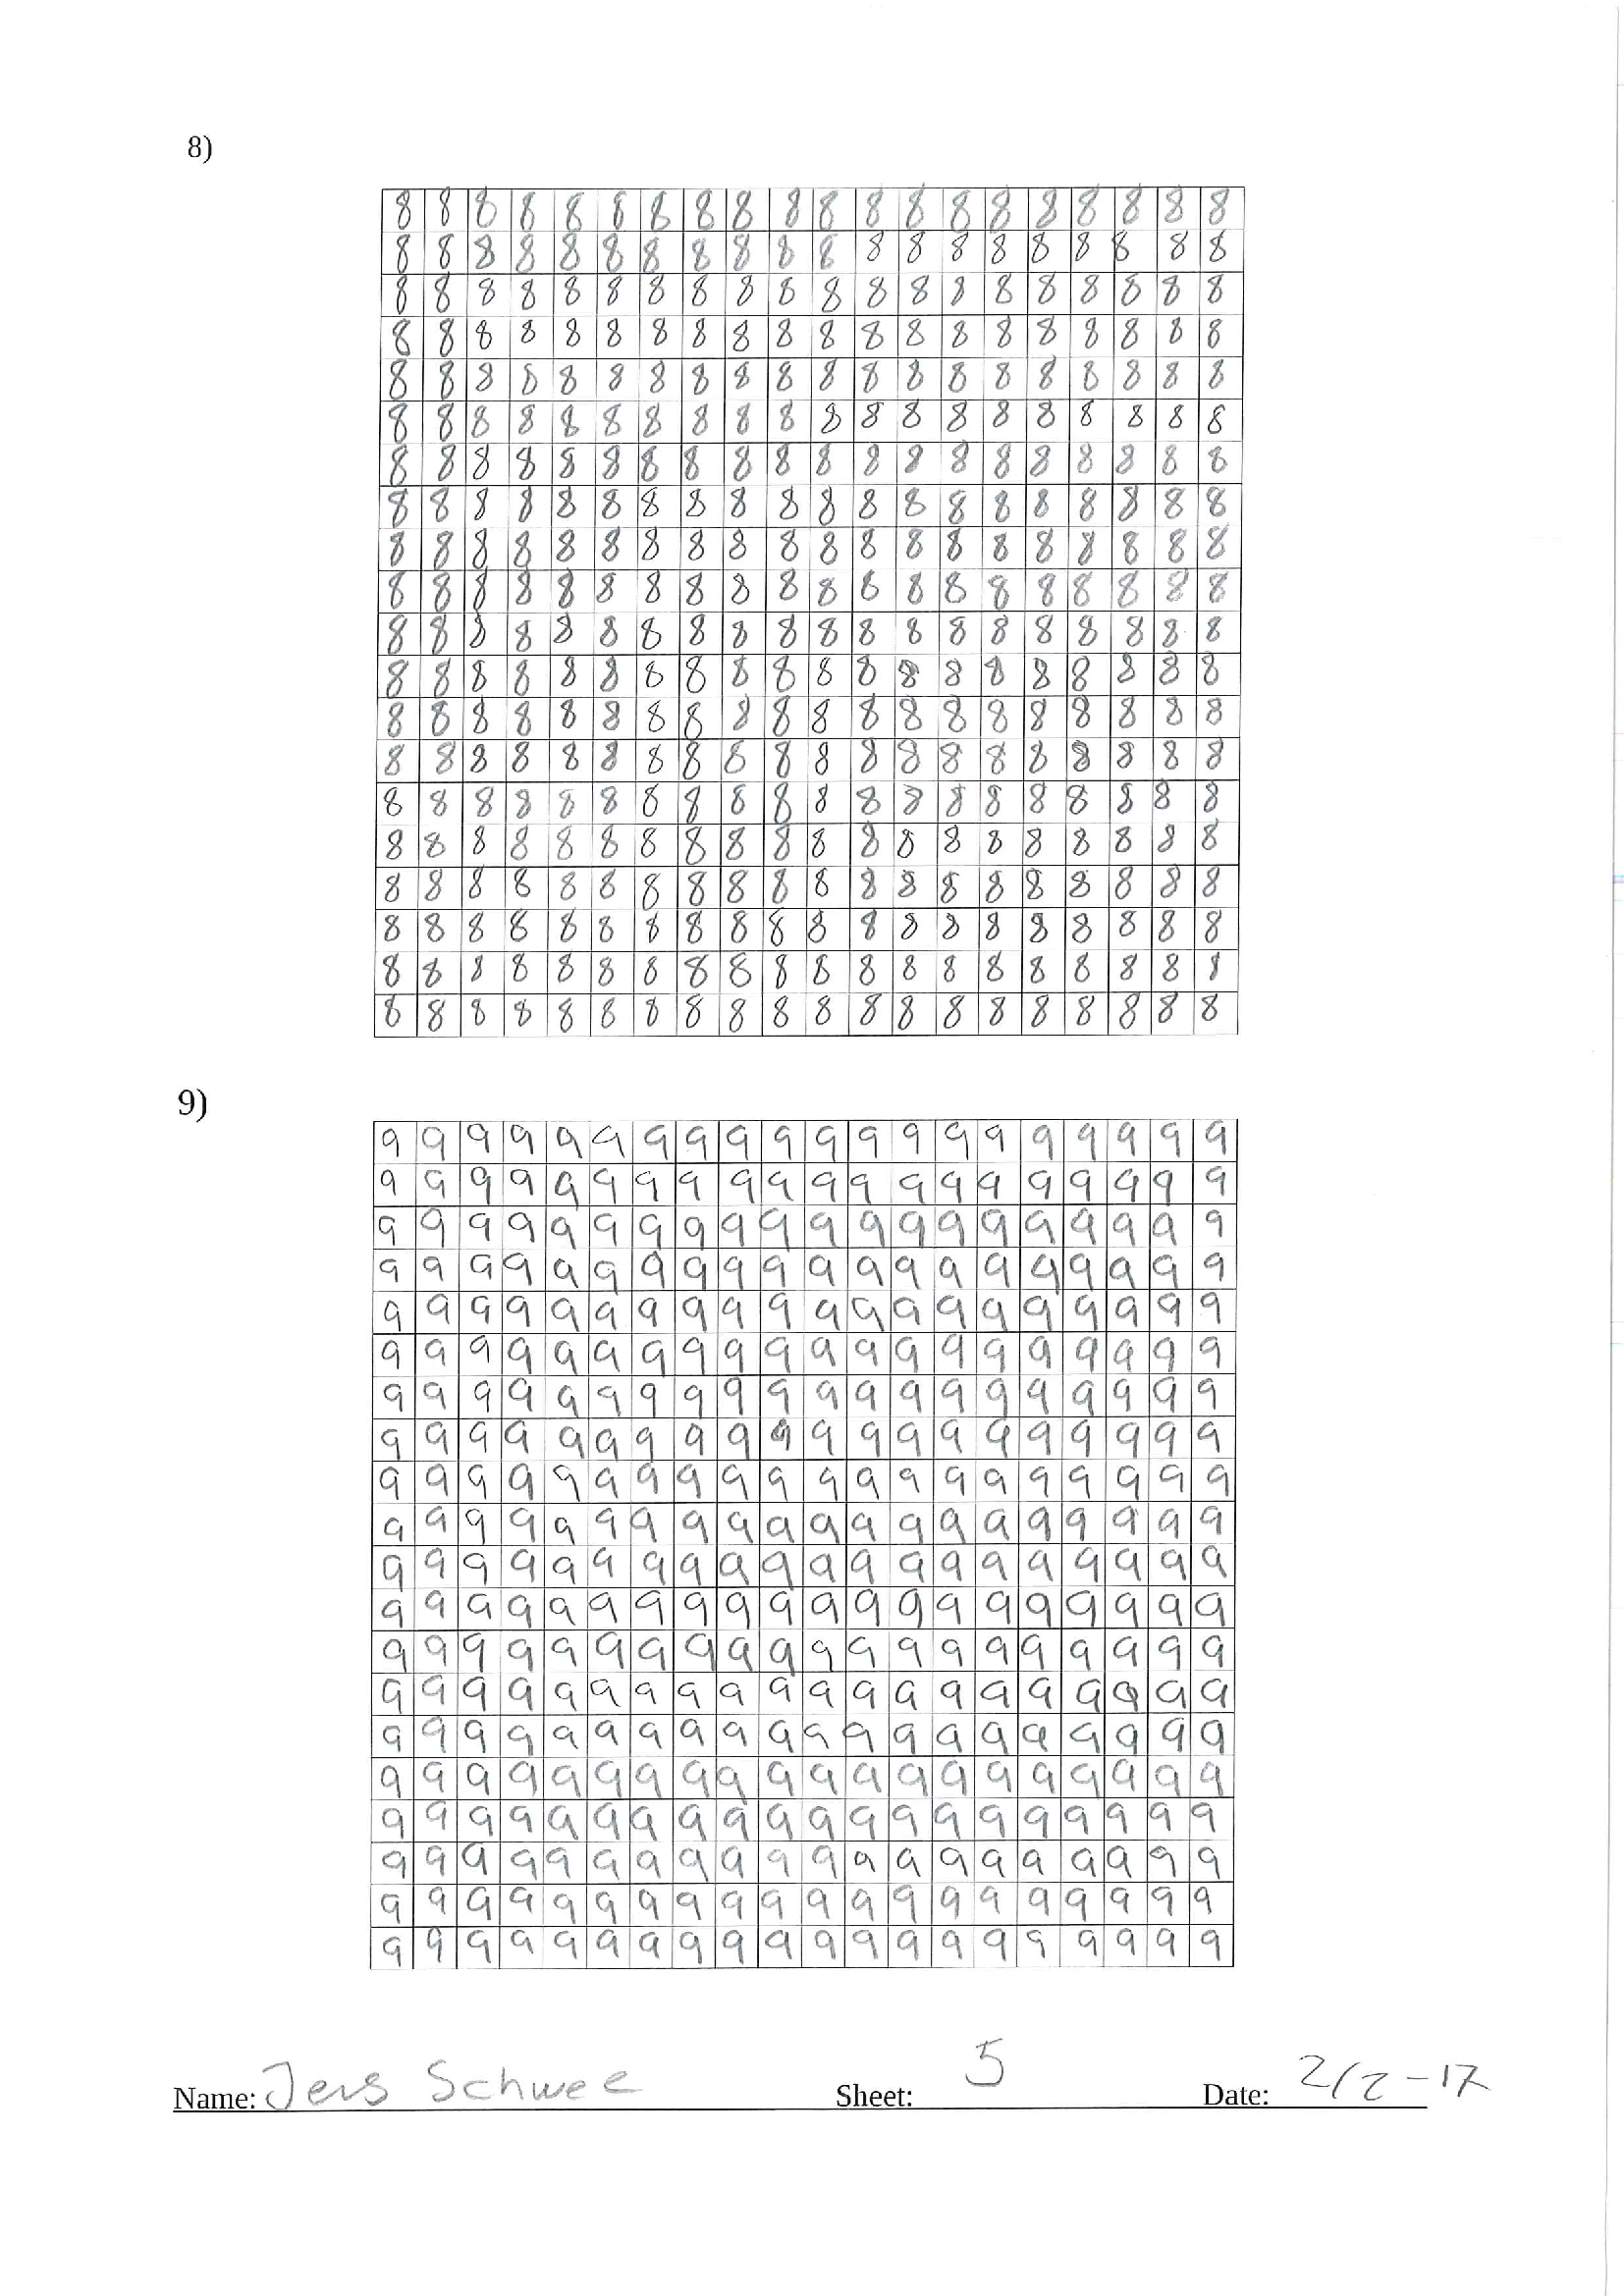 8)
8 8 8 8 8 8 8 8 8 8 8 8 8 8 8 8 8 8 8 8
8 8 8 8 8 8 8 8 8 8 8 8 8 8 8 8 8 8 8 8
8 8 8 8 8 8 8 8 8 8 8 8 8 8 8 8 8 8 8 8
8 8 8 8 8 8 8 8 8 8 8 8 8 8 8 8 8 8 8 8
8 8 8 8 8 8 8 8 8 8 8 8 8 8 8 8 8 8 8 8
8 8 8 8 8 8 8 8 8 8 8 8 8 8 8 8 8 8 8 8
8 8 8 8 8 8 8 8 8 8 8 8 8 8 8 8 8 8 8 8
8 8 8 8 8 8 8 8 8 8 8 8 8 8 8 8 8 8 8 8
8 8 8 8 8 8 8 8 8 8 8 8 8 8 8 8 8 8 8 8
8 8 8 8 8 8 8 8 8 8 8 8 8 8 8 8 8 8 8 8
8 8 8 8 8 8 8 8 8 8 8 8 8 8 8 8 8 8 8 8
8 8 8 8 8 8 8 8 8 8 8 8 8 8 8 8 8 8 8 8
8 8 8 8 8 8 8 8 8 8 8 8 8 8 8 8 8 8 8 8
8 8 8 8 8 8 8 8 8 8 8 8 8 8 8 8 8 8 8 8
8 8 8 8 8 8 8 8 8 8 8 8 8 8 8 8 8 8 8 8
8 8 8 8 8 8 8 8 8 8 8 8 8 8 8 8 8 8 8 8
8 8 8 8 8 8 8 8 8 8 8 8 8 8 8 8 8 8 8 8
8 8 8 8 8 8 8 8 8 8 8 8 8 8 8 8 8 8 8 8
8 8 8 8 8 8 8 8 8 8 8 8 8 8 8 8 8 8 8 8
8 8 8 8 8 8 8 8 8 8 8 8 8 8 8 8 8 8 8 8
9)
9 9 9 9 9 9 9 9 9 9 9 9 9 9 9 9 9 9 9 9
9 9 9 9 9 9 9 9 9 9 9 9 9 9 9 9 9 9 9 9
9 9 9 9 9 9 9 9 9 9 9 9 9 9 9 9 9 9 9 9
9 9 9 9 9 9 9 9 9 9 9 9 9 9 9 9 9 9 9 9
9 9 9 9 9 9 9 9 9 9 9 9 9 9 9 9 9 9 9 9
9 9 9 9 9 9 9 9 9 9 9 9 9 9 9 9 9 9 9 9
9 9 9 9 9 9 9 9 9 9 9 9 9 9 9 9 9 9 9 9
9 9 9 9 9 9 9 9 9 9 9 9 9 9 9 9 9 9 9 9
9 9 9 9 9 9 9 9 9 9 9 9 9 9 9 9 9 9 9 9
9 9 9 9 9 9 9 9 9 9 9 9 9 9 9 9 9 9 9 9
9 9 9 9 9 9 9 9 9 9 9 9 9 9 9 9 9 9 9 9
9 9 9 9 9 9 9 9 9 9 9 9 9 9 9 9 9 9 9 9
9 9 9 9 9 9 9 9 9 9 9 9 9 9 9 9 9 9 9 9
9 9 9 9 9 9 9 9 9 9 9 9 9 9 9 9 9 9 9 9
9 9 9 9 9 9 9 9 9 9 9 9 9 9 9 9 9 9 9 9
9 9 9 9 9 9 9 9 9 9 9 9 9 9 9 9 9 9 9 9
9 9 9 9 9 9 9 9 9 9 9 9 9 9 9 9 9 9 9 9
9 9 9 9 9 9 9 9 9 9 9 9 9 9 9 9 9 9 9 9
9 9 9 9 9 9 9 9 9 9 9 9 9 9 9 9 9 9 9 9
9 9 9 9 9 9 9 9 9 9 9 9 9 9 9 9 9 9 9 9
Name: Jens Schwee Sheet: 5 Date: 2/2-17